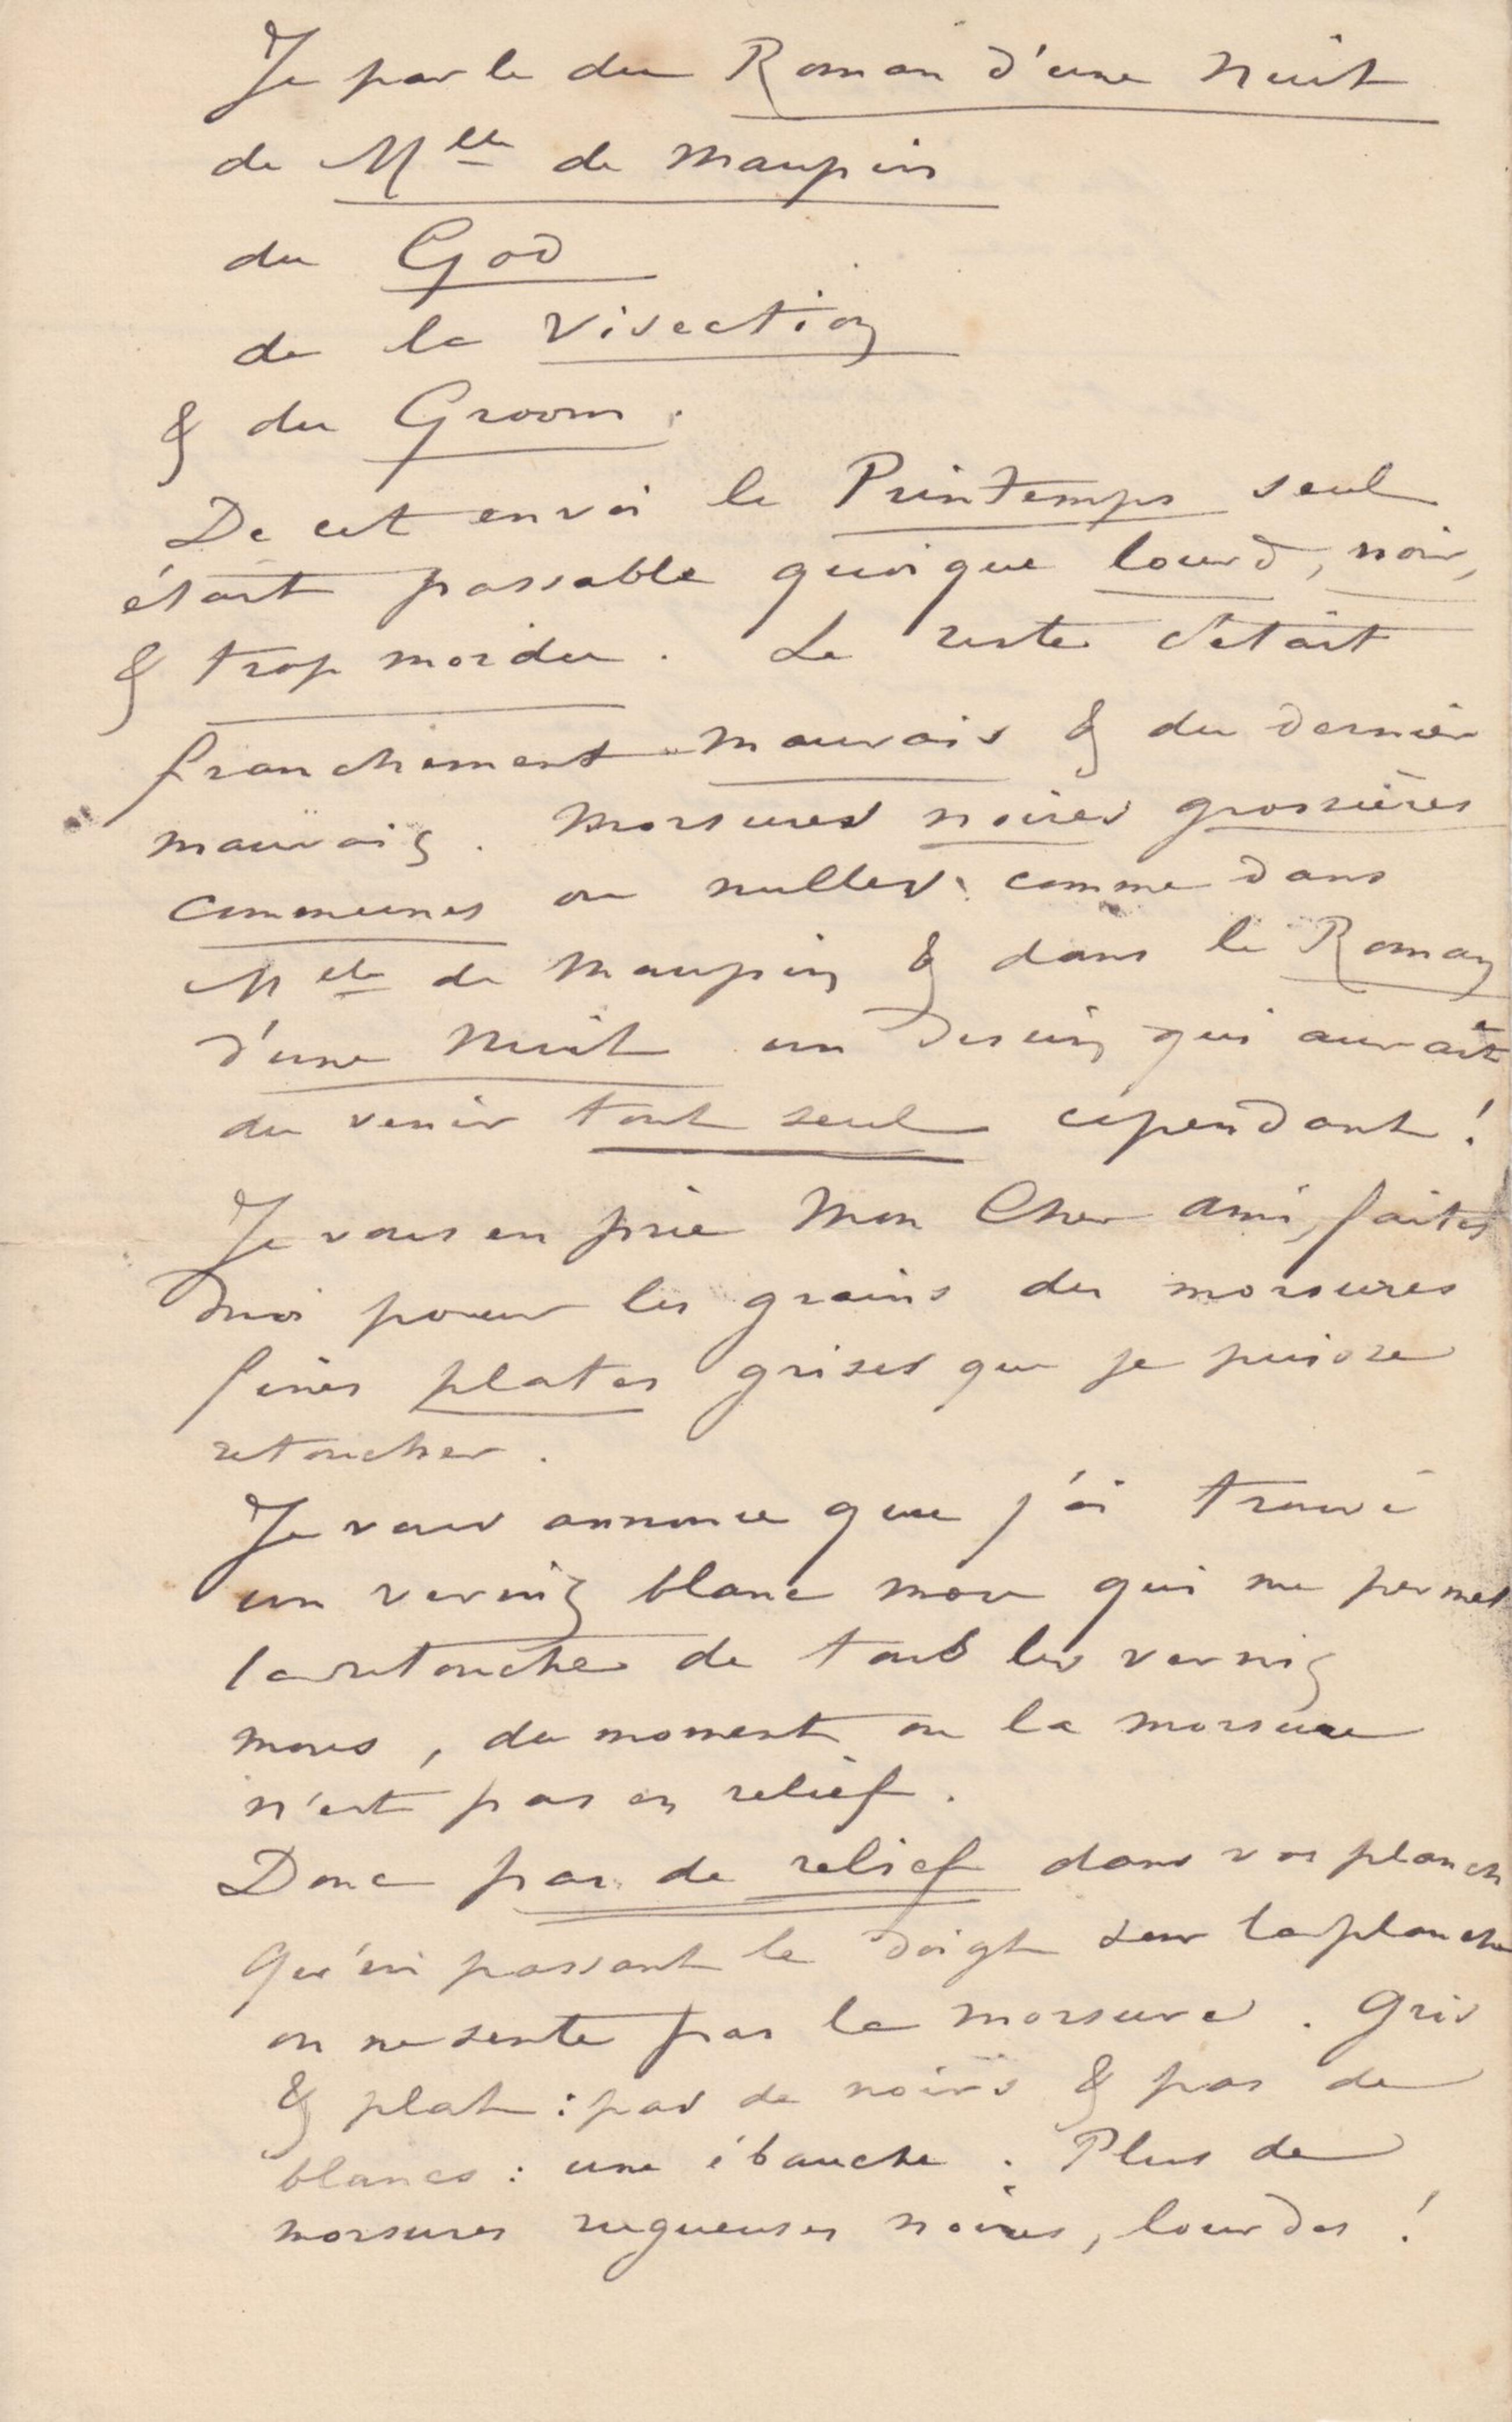 Je parle du Roman d'une Nuit
de Mlle de Maupin
du God
de la Visection
& du Groom.
De cet envoi le Printemps seul
était passable quoique lourd, noir,
& trop mordu. Le reste c'etait
franchement mauvais & du dernier
mauvais. Morsures noires grossières
communes ou nulles comme dans
Mlle de Maupin & dans le Roman
d'une Nuit un dessin qui aurait
du venir tout seul cependant !
Je vous en prie Mon Cher ami, faites
moi pour les grains des morsures
fines plates grises que je puisse
retoucher.
Je vous annonce que j'ai trouvé
un vernis blanc mou qui me permet
la retouche de tous les vernis
mous, du moment ou la morsure
n'est pas en relief.
Donc pas de relief dans vos planch
Qu'en passant le doigt sur la planche
on ne sente pas la morsure. Gris
& plat : pas de noirs & pas de
blancs : une ébauche. Plus de
morsures rugueuses noires, lourdes !